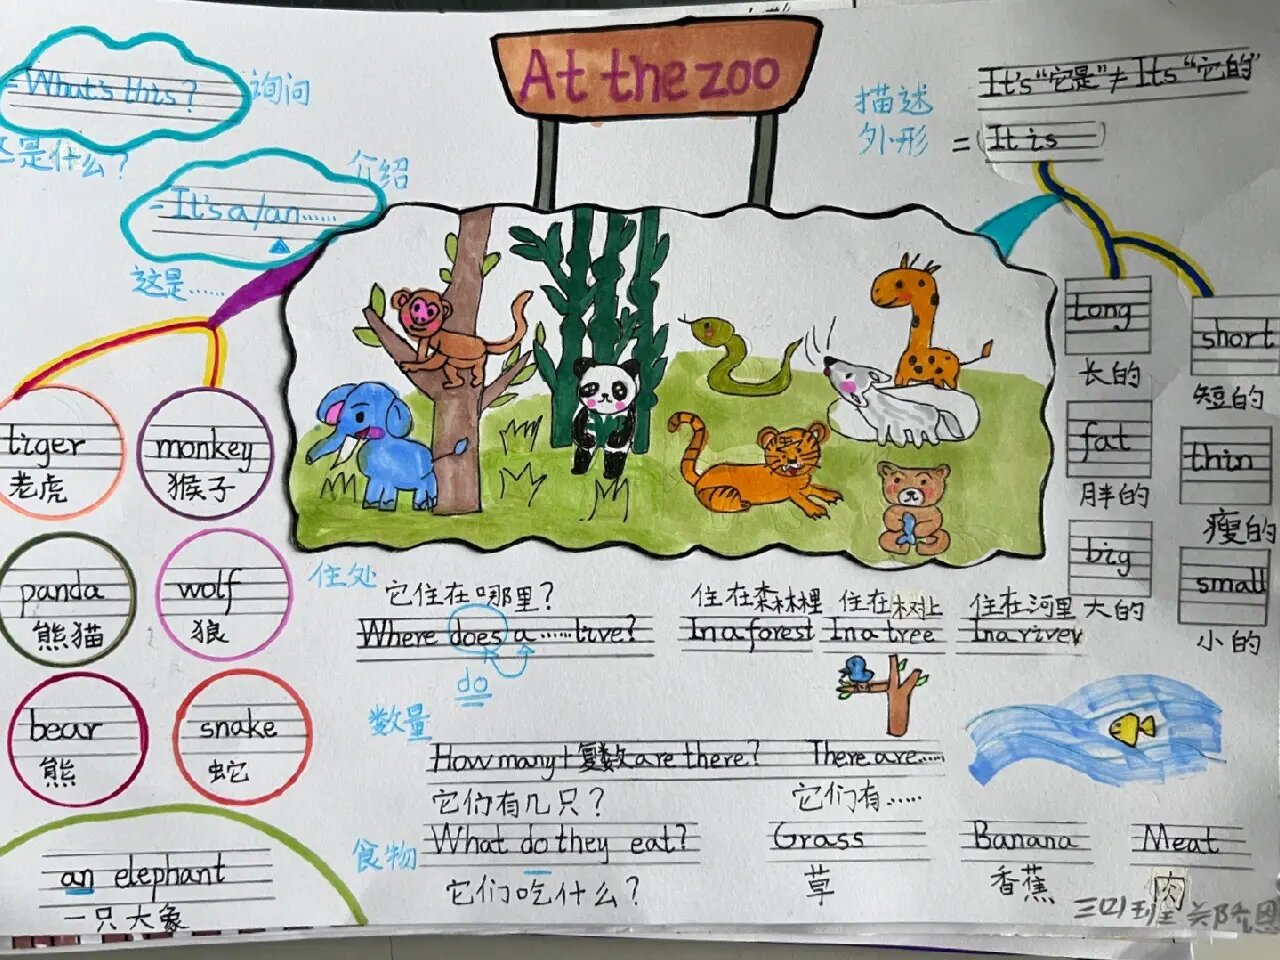 At the zoo
-What's this?
询问
是什么?
介绍
-It's a/an......
这是......
描述
外形
It's "它是" ≠ Its "它的"
= (It is)
long
长的
short
短的
fat
胖的
thin
瘦的
big
大的
small
小的
tiger
老虎
monkey
猴子
panda
熊猫
wolf
狼
bear
熊
snake
蛇
an elephant
一只大象
住处
它住在哪里?
Where does a ...... live?
do
住在森林里
In a forest
住在树上
In a tree
住在河里
In a river
数量
How many + 复数 are there?
There are......
它们有几只?
它们有......
食物
What do they eat?
它们吃什么?
Grass
草
Banana
香蕉
Meat
肉
三四班